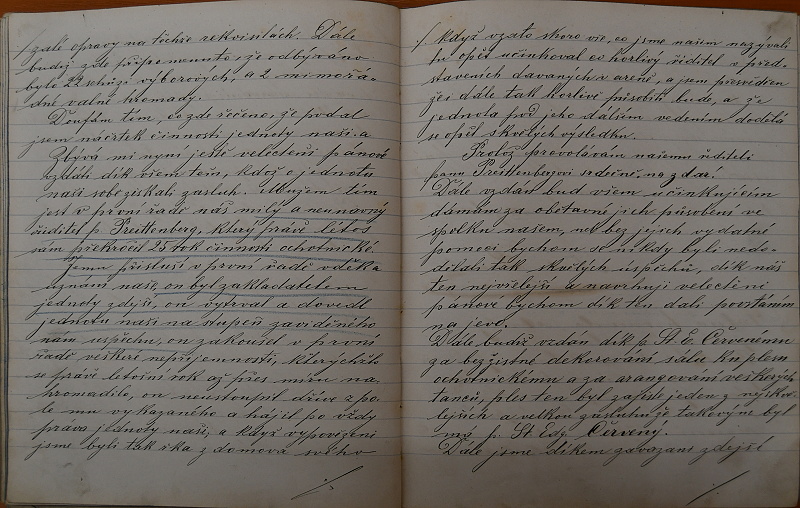 zalé opravy na těchže rekvisitách. Dále
budiž zde připomenuto, že odbýváno
bylo 22 schůzí výborových, a 2 mimořá-
dné valné hromady.
Doufám tím, co zde řečeno, že podal
jsem náčrtek činnosti jednoty naší. a
Zbývá mi nyní ještě velectění pánové
vzdáti dík všem těm, kdož o jednotu
naši sobě získali zasluh. Mužem tím
jest v první řadě náš milý a neunavný
řiditel p. Preittenberg, který právě letos
sám překročil 25 rok činnosti ochotnické
Jemu přísluší v první řadě vděk a
uznání naše, on byl zakladatelem
jednoty zdejší, on vytrval a dovedl
jednotu naši na stupeň záviděného
nám úspěchu, on zakoušel v první
řadě veškeré nepříjemnosti, kterých žel
se právě letošní rok až přes míru na-
hromadilo, on neustoupil dříve z po-
le mu vykázaného a hájil po vždy
práva jednoty naší, a když vypovězeni
jsme byli tak řka z domova svého
když vzato skoro vše, co jsme našim nazývali
tu opět učinkoval co horlivý řiditel v před-
staveních davaných v areně, a jsem přesvědčen
že i dále tak horlivě působiti bude, a že
jednota pod jeho dalším vedením dodělá
se opět skvělých výsledků.
Pročež provolávám našemu řiditeli
panu Preittenbergovi srdečné na zdar!
Dále vzdán buď všem učinkujícím
dámám za obětavné jich působení ve
spolku našem, neb bez jejich vydatné
pomoci bychom se nikdy byli nedo-
dělali tak skvělých úspěchů, dík náš
ten nejvřelejší a navrhuji velectění
pánové bychom dík ten dali povstáním
na jevo.
Dále budiž vzdán dík p. St. E. Červenému
za bezžistné dekorování sálu ku plesu
ochotnickému a za arangování veškerých
tanců, ples ten byl zajisté jeden z nejskvě-
lejších a velkou zásluhu že takovým byl
má p. St. Edg. Červený.
Dále jsme díkem zavázáni zdejší